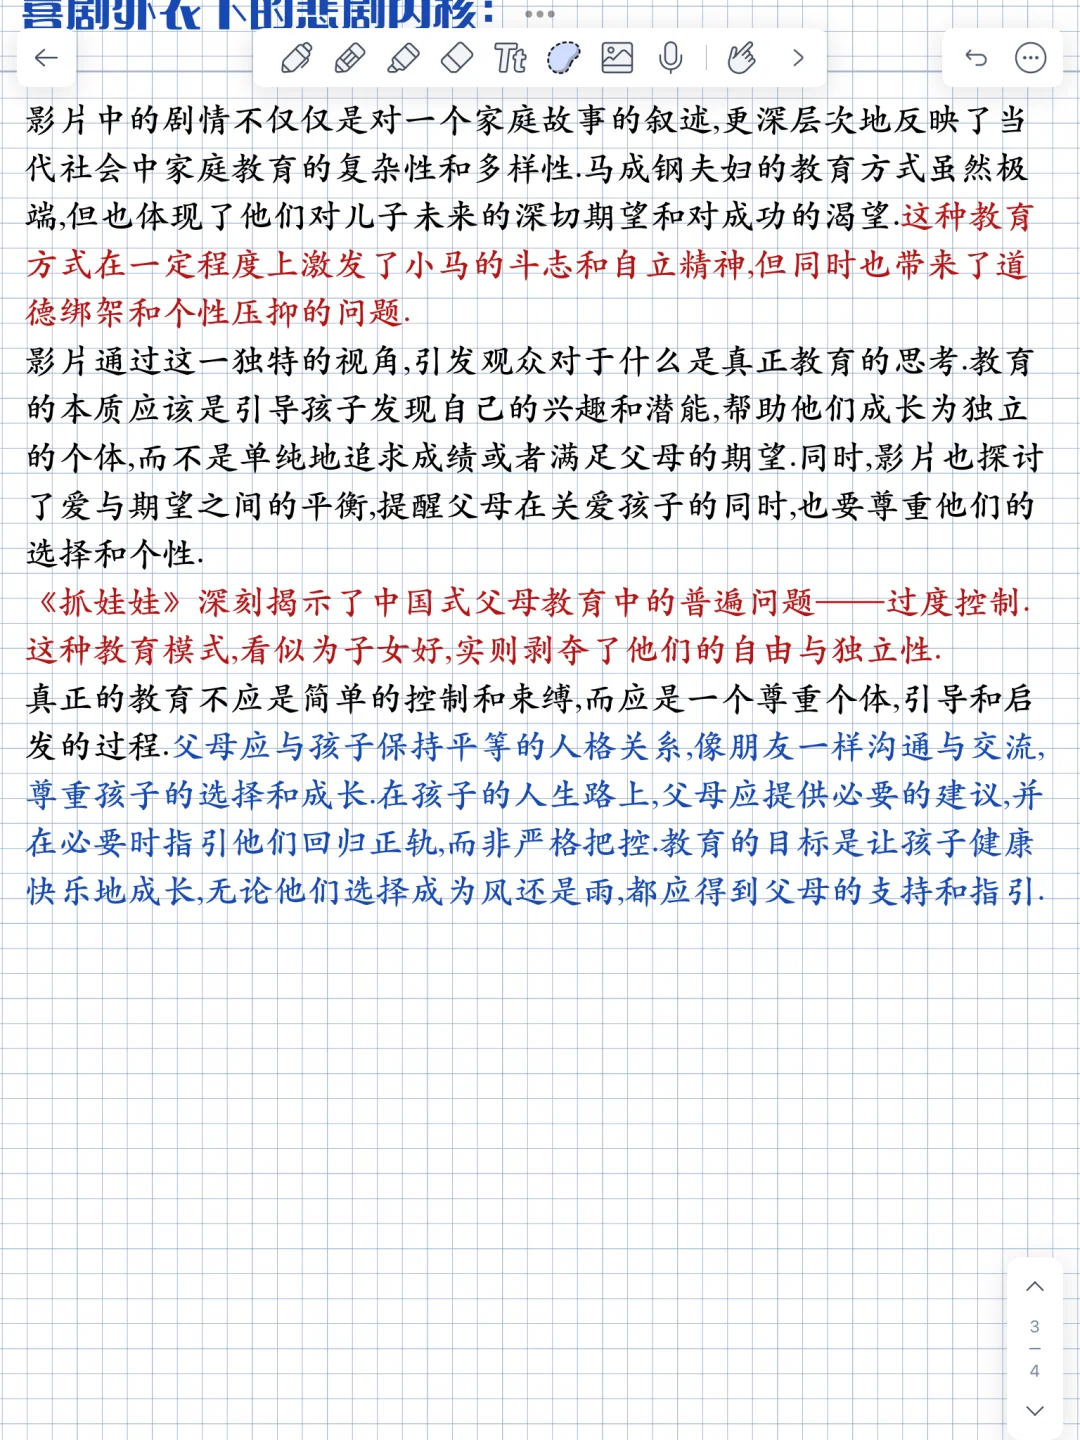 喜剧外衣下的悲剧内核:
Tt
影片中的剧情不仅仅是对一个家庭故事的叙述,更深层次地反映了当
代社会中家庭教育的复杂性和多样性.马成钢夫妇的教育方式虽然极
端,但也体现了他们对儿子未来的深切期望和对成功的渴望.这种教育
方式在一定程度上激发了小马的斗志和自立精神,但同时也带来了道
德绑架和个性压抑的问题.
影片通过这一独特的视角,引发观众对于什么是真正教育的思考.教育
的本质应该是引导孩子发现自己的兴趣和潜能,帮助他们成长为独立
的个体,而不是单纯地追求成绩或者满足父母的期望.同时,影片也探讨
了爱与期望之间的平衡,提醒父母在关爱孩子的同时,也要尊重他们的
选择和个性.
《抓娃娃》深刻揭示了中国式父母教育中的普遍问题——过度控制.
这种教育模式,看似为子女好,实则剥夺了他们的自由与独立性.
真正的教育不应是简单的控制和束缚,而应是一个尊重个体,引导和启
发的过程.父母应与孩子保持平等的人格关系,像朋友一样沟通与交流,
尊重孩子的选择和成长.在孩子的人生路上,父母应提供必要的建议,并
在必要时指引他们回归正轨,而非严格把控.教育的目标是让孩子健康
快乐地成长,无论他们选择成为风还是雨,都应得到父母的支持和指引.
3
4